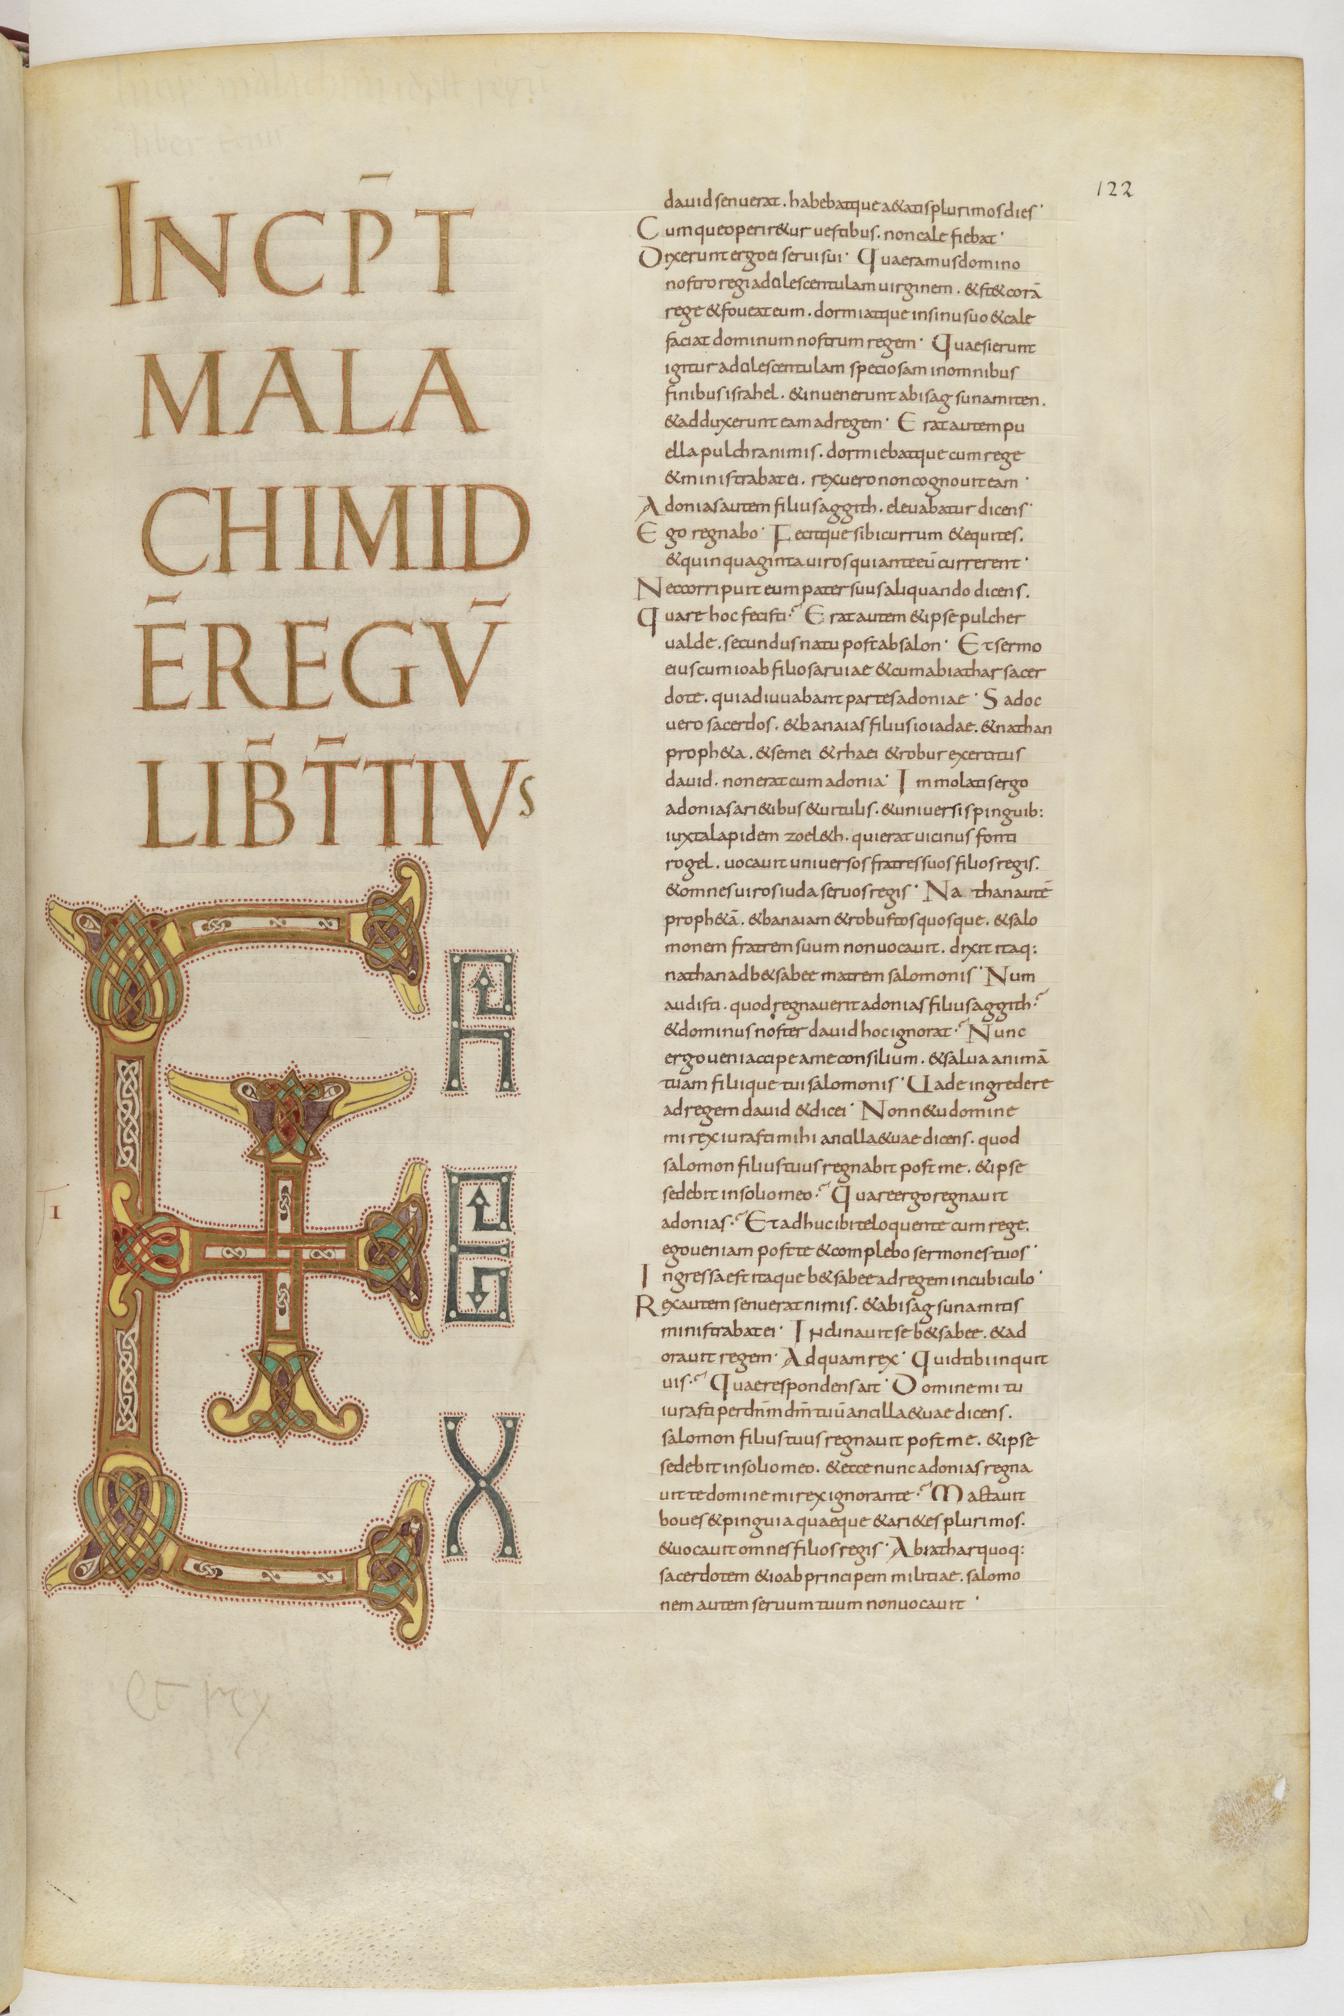 INCP̄T
MALA
CHIMID
ĒREGV̄
LIB̄T̄TIVs
ET
REX
I
et rex
122
david senuerat. habebatque aetatis plurimos dies·
Cumque operiretur vestibus. non calefiebat·
Dixerunt ergo ei servi sui· Quaeramus domino
nostro regi adolescentulam virginem. & stet corā
rege & foveat eum. dormiatque in sinu suo & cale
faciat dominum nostrum regem· Quaesierunt
igitur adolescentulam speciosam in omnibus
finibus israhel. & invenerunt abisag sunamiten.
& adduxerunt eam ad regem· Erat autem pu
ella pulchra nimis. dormiebatque cum rege
& ministrabat ei. rex vero non cognovit eam·
Adonias autem filius aggith. elevabatur dicens·
Ego regnabo· Fecitque sibi currum & equites.
& quinquaginta viros qui ante eū currerent·
Nec corripuit eum pater suus aliquando dicens.
Quare hoc fecisti? Erat autem & ipse pulcher
valde. secundus natu post absalon· Et sermo
eius cum ioab filio sarviae & cum abiathar sacer
dote. qui adiuvabant partes adoniae· Sadoc
vero sacerdos. & banaias filius ioiadae. & nathan
propheta. & semei & rhaei & robur exercitus
david. non erat cum adonia· Immolatis ergo
adonias arietibus & vitulis. & universis pinguib:
iuxta lapidem zoeleth. qui erat vicinus fonti
rogel. vocavit universos fratres suos filios regis.
& omnes viros iuda servos regis· Nathan autē
prophetā. & banaiam & robustos quosque. & salo
monem fratrem suum non vocavit. dixit itaq:
nathan ad bethsabee matrem salomonis· Num
audisti. quod regnaverit adonias filius aggith?
& dominus noster david hoc ignorat? Nunc
ergo veni accipe a me consilium. & salva animā
tuam filiique tui salomonis· Vade ingredere
ad regem david & dic ei· Nonne tu domine
mi rex iurasti mihi ancillae tuae dicens. quod
salomon filius tuus regnabit post me. & ipse
sedebit in solio meo? Quare ergo regnavit
adonias? Et adhuc ibi te loquente cum rege.
ego veniam post te & complebo sermones tuos·
Ingressa est itaque bethsabee ad regem in cubiculo·
Rex autem senuerat nimis. & abisag sunamitis
ministrabat ei· Inclinavit se bethsabee. & ad
oravit regem· Ad quam rex· Quid tibi inquit
vis? Quae respondens ait· Domine mi tu
iurasti per dñm dm̄ tuū ancillae tuae dicens.
salomon filius tuus regnavit post me. & ipse
sedebit in solio meo. & ecce nunc adonias regna
vit te domine mi rex ignorante? Mactavit
boves & pinguia quaeque & arietes plurimos.
& vocavit omnes filios regis· Abiathar quoq:
sacerdotem & ioab principem militiae. salomo
nem autem servum tuum non vocavit·